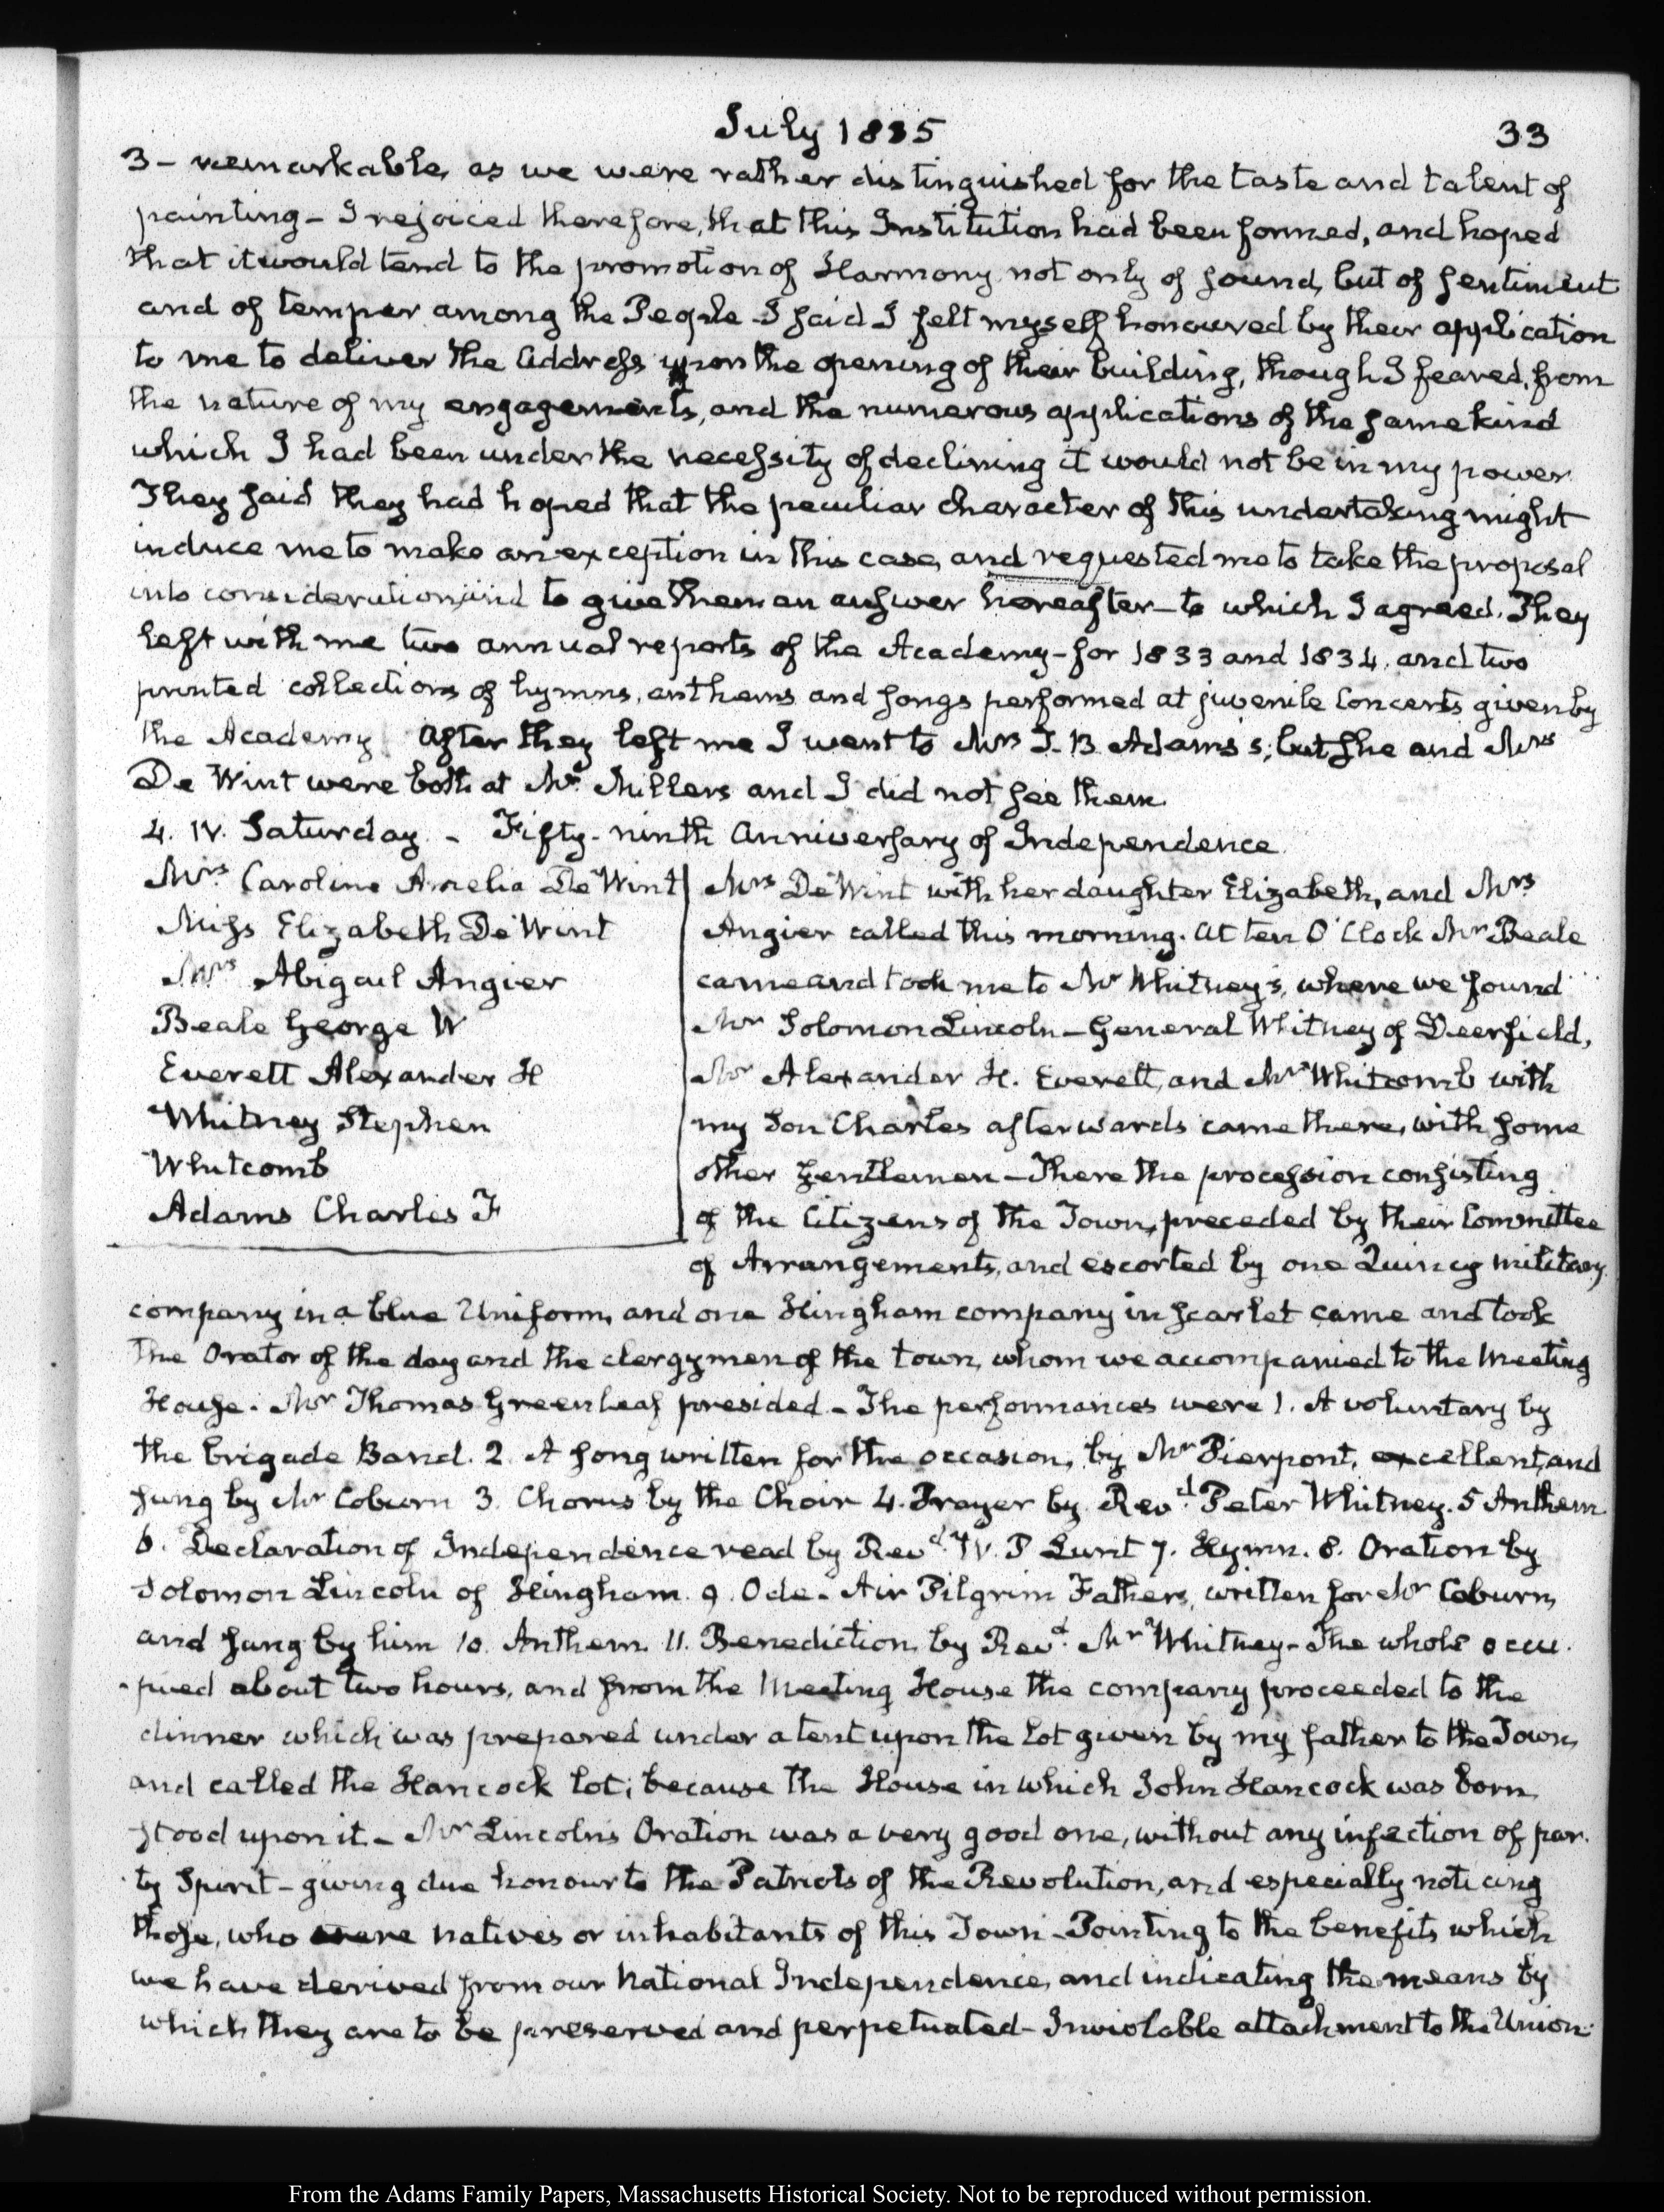 July 1835
33
3 - remarkable, as we were rather distinguished for the taste and talent of
painting - I rejoiced therefore, that this Institution had been formed, and hoped
that it would tend to the promotion of Harmony not only of sound, but of sentiment
and of temper among the People - I said I felt myself honoured by their application
to me to deliver the Address upon the opening of their building, though I feared, from
the nature of my engagements, and the numerous applications of the same kind
which I had been under the necessity of declining it would not be in my power.
They said they had hoped that the peculiar character of this undertaking might
induce me to make an exception in this case, and requested me to take the proposal
into consideration, and to give them an answer hereafter - to which I agreed. They
left with me two annual reports of the Academy - for 1833 and 1834, and two
printed collections of hymns, anthems and songs performed at juvenile Concerts given by
the Academy. After they left me I went to Mrs J. B. Adams's; but she and Mrs
De Wint were both at Mr Millers and I did not see them.
4. IV. Saturday - Fifty-ninth Anniversary of Independence.
Mrs Caroline Amelia De Wint
Miss Elizabeth De Wint
Mrs Abigail Angier
Beale George W
Everett Alexander H
Whitney Stephen
Whitcomb
Adams Charles F
Mrs De Wint with her daughter Elizabeth, and Mrs
Angier called this morning. At ten O'Clock Mr Beale
came and took me to Mr Whitney's, where we found
Mr Solomon Lincoln - General Whitney of Deerfield,
Mr Alexander H. Everett, and Mr Whitcomb with
my Son Charles afterwards came there, with some
other Gentlemen - There the procession consisting
of the Citizens of the Town, preceded by their Committee
of Arrangements, and escorted by one Quincy military
company in a blue Uniform, and one Hingham company in scarlet came and took
the Orator of the day and the clergymen of the town, whom we accompanied to the Meeting
House. Mr Thomas Greenleaf presided - The performances were 1. A voluntary by
the brigade Band. 2. A song written for the occasion, by Mr Pierpont, excellent, and
sung by Mr Coburn 3. Chorus by the Choir 4. Prayer by Revd Peter Whitney. 5 Anthem
6. Declaration of Independence read by Revd W. P Lunt 7. Hymn. 8. Oration by
Solomon Lincoln of Hingham. 9. Ode - Air Pilgrim Fathers, written for Mr Coburn,
and sung by him 10. Anthem. 11. Benediction by Revd Mr Whitney - The whole occu-
pied about two hours, and from the Meeting House the company proceeded to the
dinner which was prepared under a tent upon the lot given by my father to the Town,
and called the Hancock lot; because the House in which John Hancock was born,
stood upon it - Mr Lincolns Oration was a very good one, without any infection of par-
ty Spirit - giving due honour to the Patriots of the Revolution, and especially noticing
those, who were natives or inhabitants of this Town - Pointing to the benefits which
we have derived from our National Independence, and indicating the means by
which they are to be preserved and perpetuated - Inviolable attachment to the Union
From the Adams Family Papers, Massachusetts Historical Society. Not to be reproduced without permission.